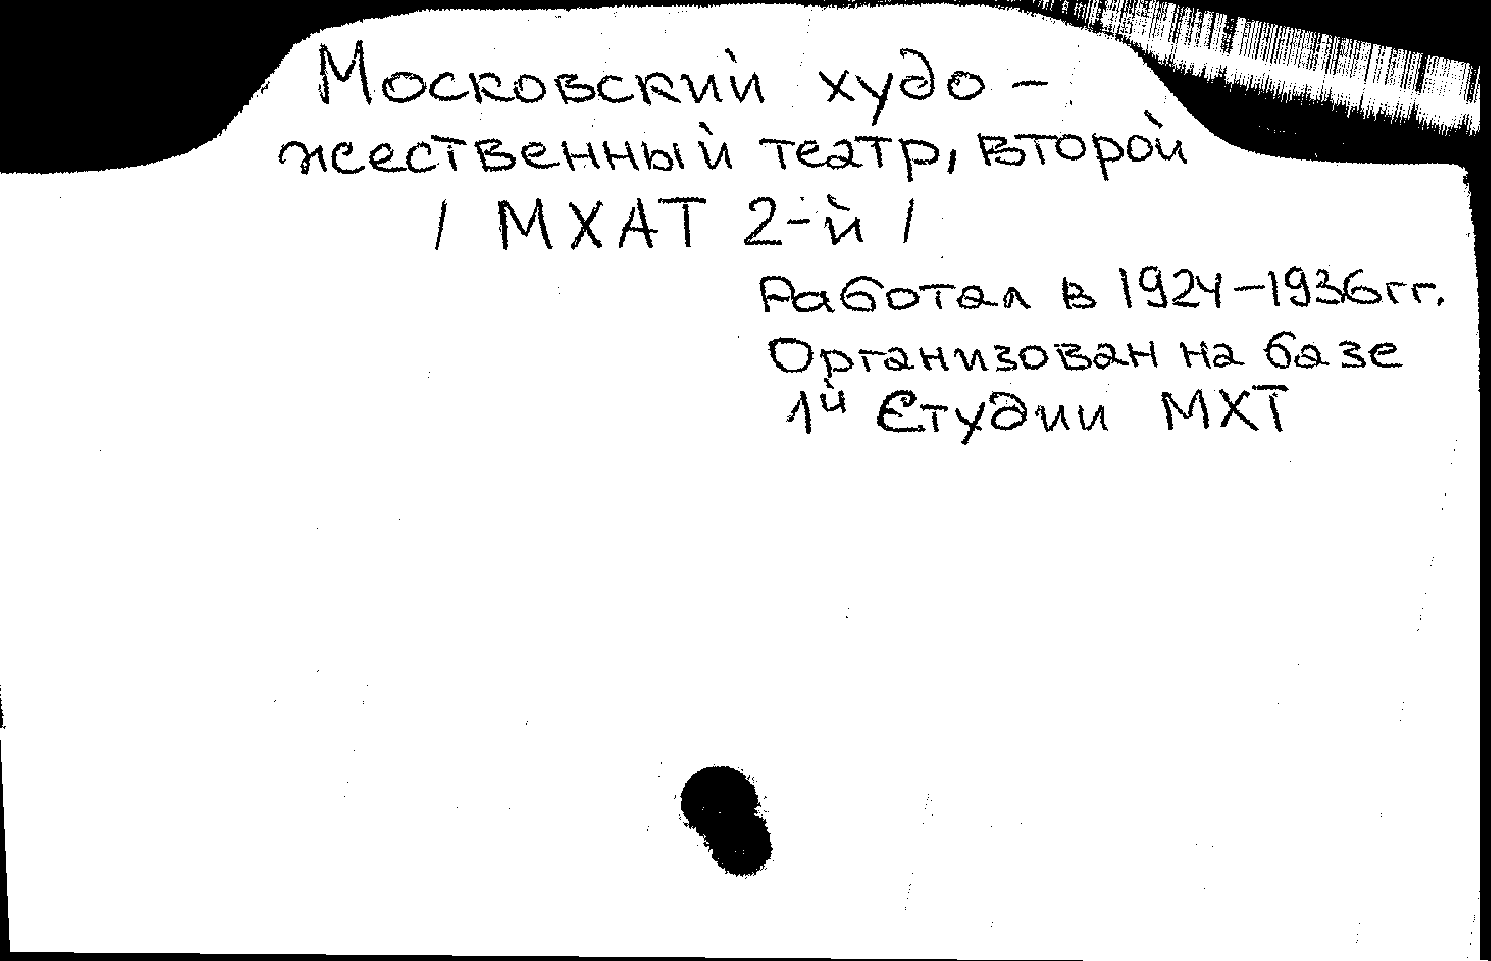 Московский худо-
жественный театр, второй
/ МХАТ 2-й /
Работал в 1924-1936гг.
Организован на базе
1й Студии МХТ